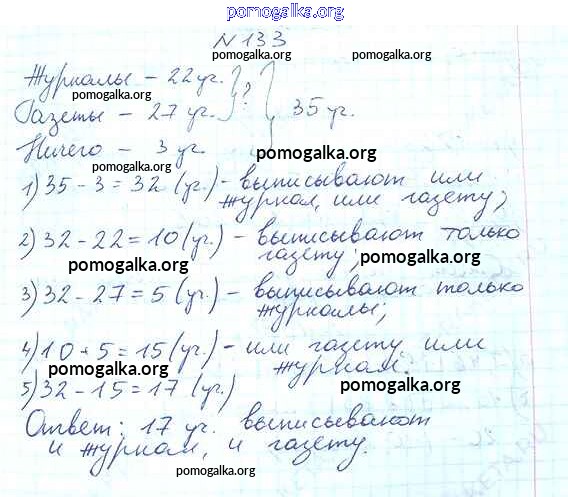 pomogalka.org
N 133
pomogalka.org pomogalka.org
Журналы – 22 уч.
pomogalka.org
Газеты – 27 уч. ? 35 уч.
pomogalka.org
Ничего – 3 уч.
pomogalka.org
pomogalka.org
1) 35 - 3 = 32 (уч.) – выписывают или
журнал, или газету;
pomogalka.org
2) 32 - 22 = 10 (уч.) – выписывают только
газету;
pomogalka.org pomogalka.org
3) 32 - 27 = 5 (уч.) – выписывают только
журналы;
pomogalka.org
4) 10 + 5 = 15 (уч.) – или газету или
журнал.
pomogalka.org
5) 32 - 15 = 17 (уч.)
pomogalka.org
Ответ: 17 уч. выписывают
pomogalka.org
и журнал, и газету.
pomogalka.org